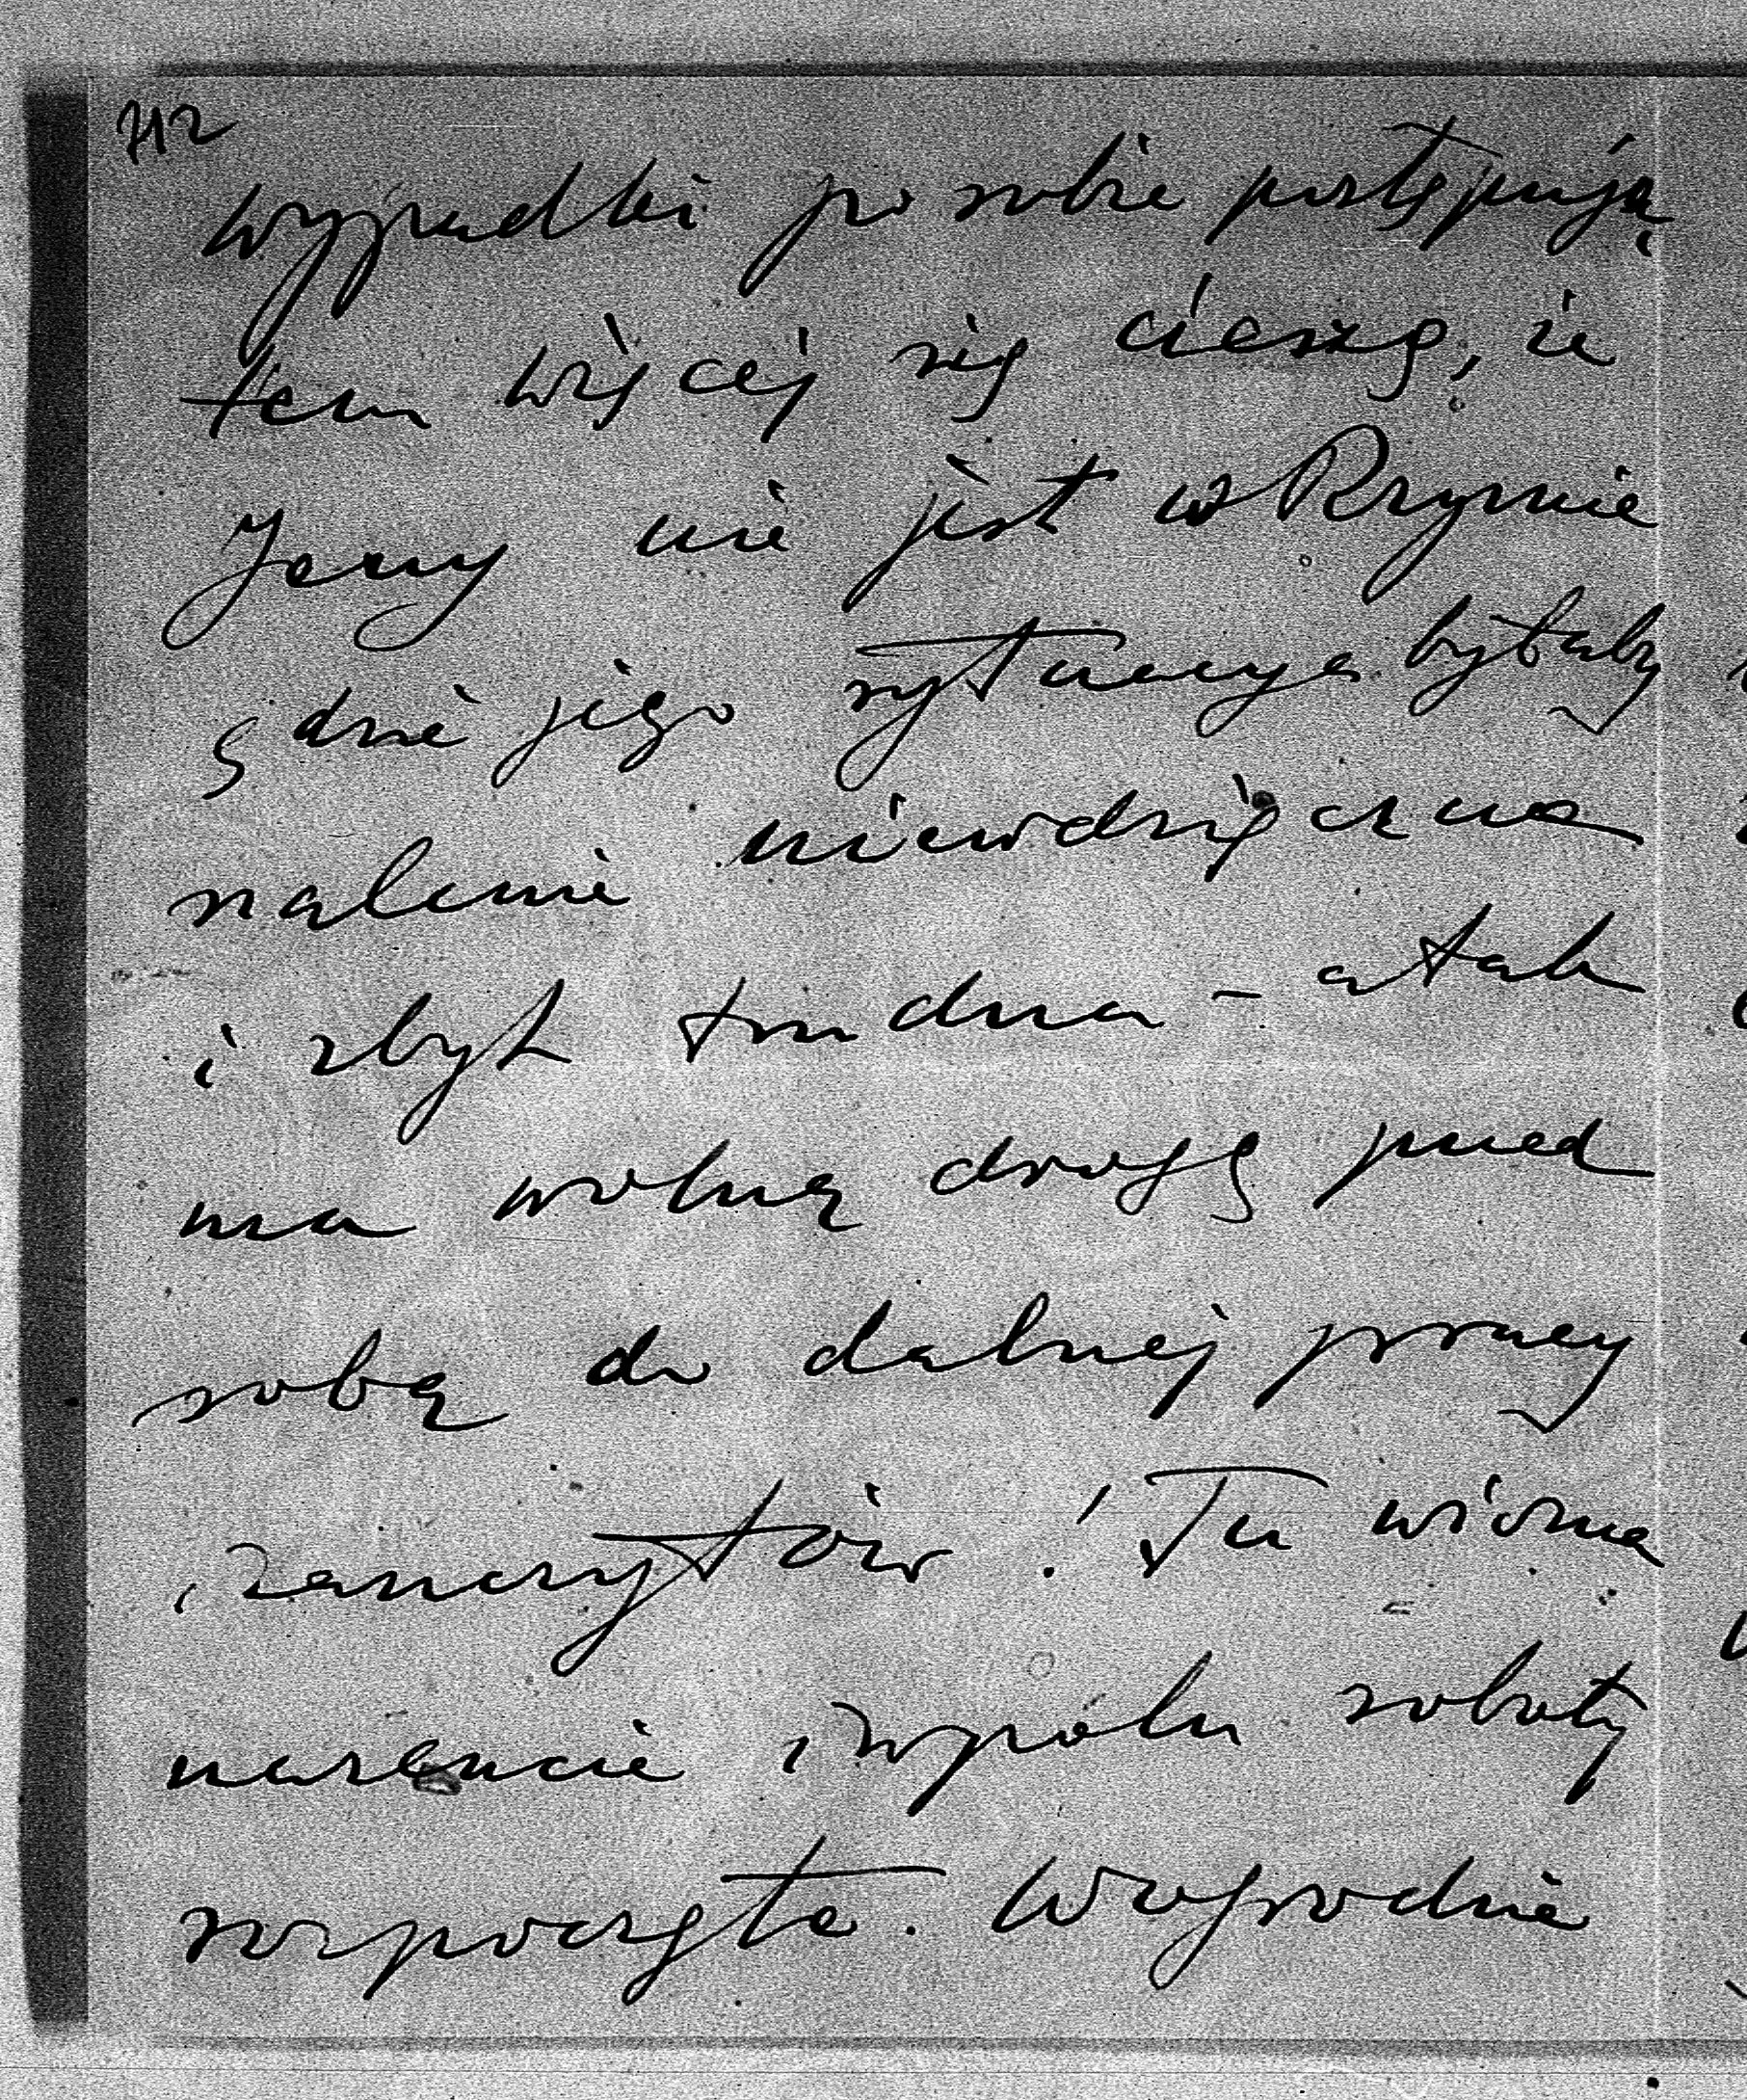 712
wypadki po sobie postępują
tem więcej się cieszę, że
Jerzy nie jest w Rzymie
gdzie jego sytuacya byłaby
szalenie niewdzięczna
i zbyt trudna - a tak
ma wolną drogę przed
sobą do dalszej pracy
i zaszczytów! Tu wiosna
nareszcie i w polu roboty
rozpoczęte. W ogrodzie